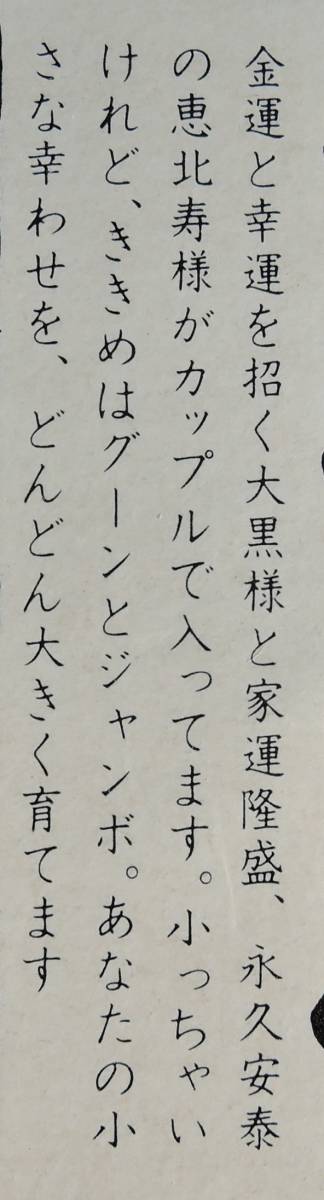 金運と幸運を招く大黒様と家運隆盛、永久安泰
の恵北寿様がカップルで入ってます。小っちゃい
けれど、ききめはグーンとジャンボ。あなたの小
さな幸わせを、どんどん大きく育てます